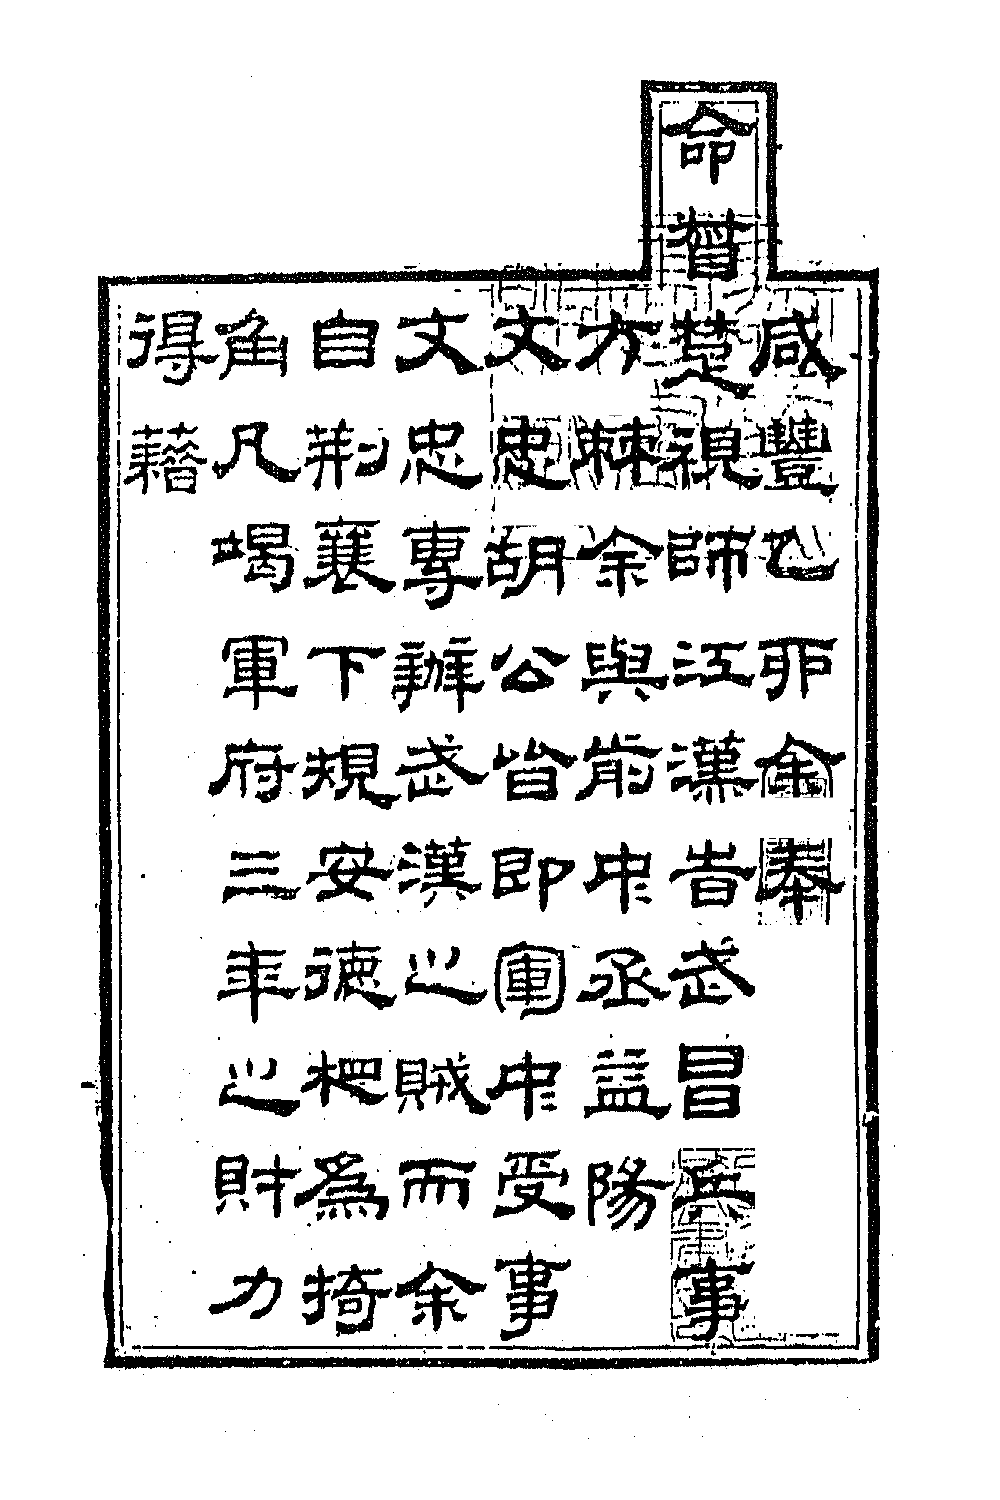 咸豐乙卯余奉
命督楚視師江漢旹武昌兵事
方棘余與前中丞益陽
文忠胡公皆即軍中受事
文忠專辦武漢之賊而余
自荆襄下規安德相為掎
角凡竭軍府三年之財力
得藉